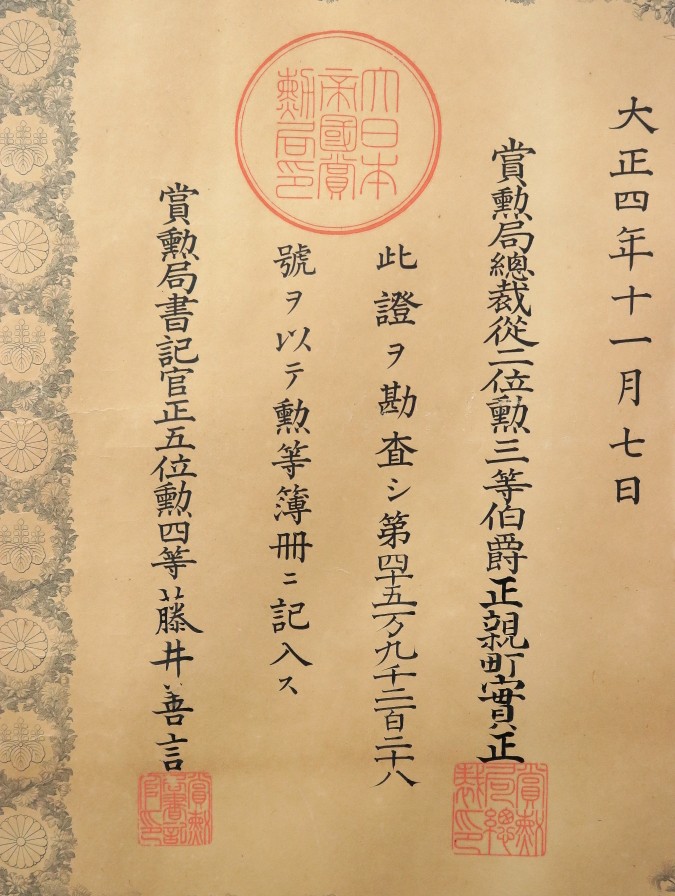 大正四年十一月七日
賞勲局總裁從二位勲三等伯爵正親町實正
賞勲
局總
裁印
大日本
帝國賞
勲局印
此證ヲ勘査シ第四十五万九千二百二十八
號ヲ以テ勲等簿冊ニ記入ス
賞勲局書記官正五位勲四等藤井善言
賞勲
局書記
官印